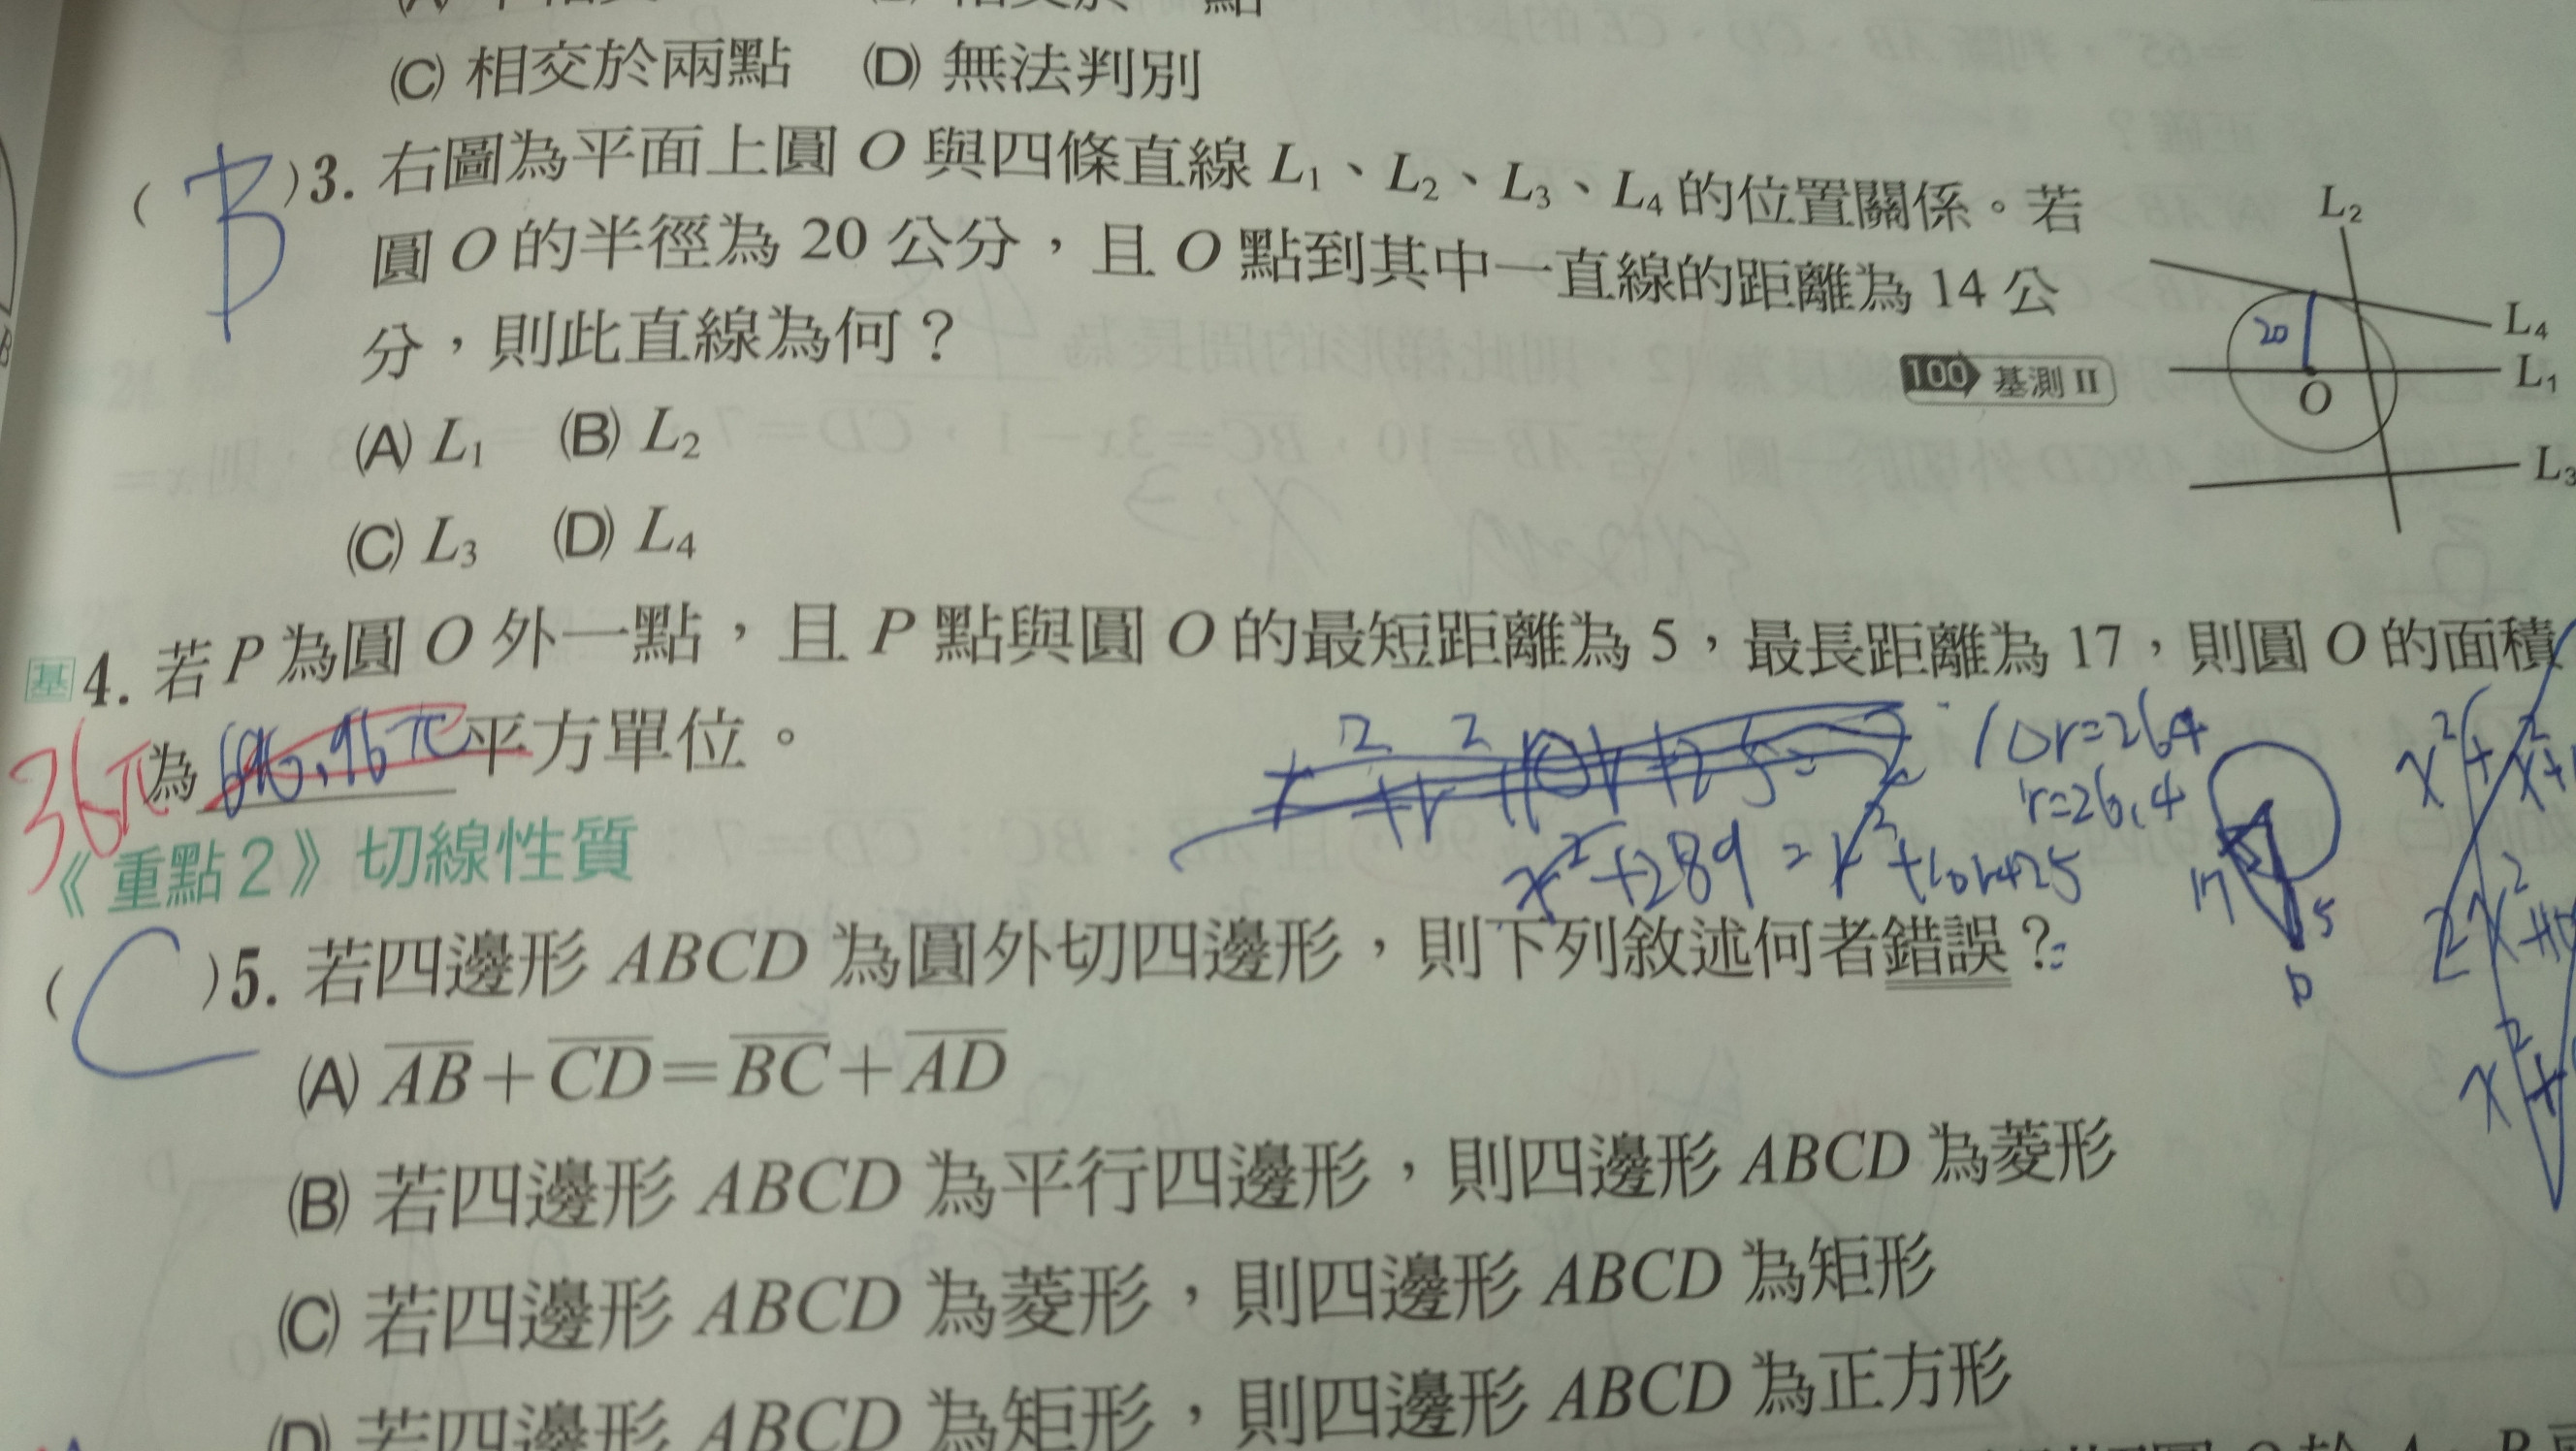 (C) 相交於兩點 (D) 無法判別
( B )3. 右圖為平面上圓 O 與四條直線 L1、L2、L3、L4 的位置關係。若
圓 O 的半徑為 20 公分，且 O 點到其中一直線的距離為 14 公
分，則此直線為何？
100 基測 II
(A) L1 (B) L2
(C) L3 (D) L4
L2
L4
20
L1
O
L3
基 4. 若 P 為圓 O 外一點，且 P 點與圓 O 的最短距離為 5，最長距離為 17，則圓 O 的面積
36π 為 696.96π 平方單位。
10r=264
r=26.4
x²+289=r²+10r+25
17
5
P
《重點2》切線性質
( C )5. 若四邊形 ABCD 為圓外切四邊形，則下列敘述何者錯誤？
(A) AB+CD=BC+AD
(B) 若四邊形 ABCD 為平行四邊形，則四邊形 ABCD 為菱形
(C) 若四邊形 ABCD 為菱形，則四邊形 ABCD 為矩形
(D) 若四邊形 ABCD 為矩形，則四邊形 ABCD 為正方形